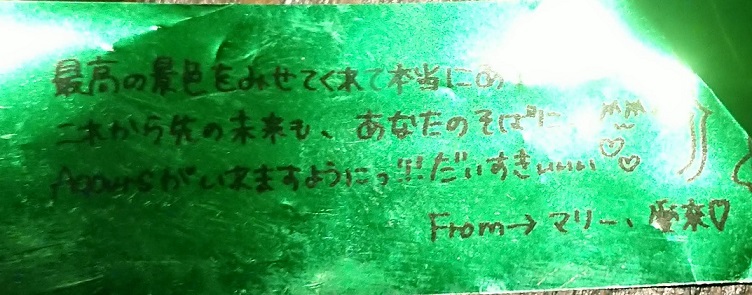 最高の景色をみせてくれて本当にあ
これから先の未来も、あなたのそばに
Aqoursがいますようにっ!!!だいすきぃぃぃ♡♡
From→マリー、愛奈♡